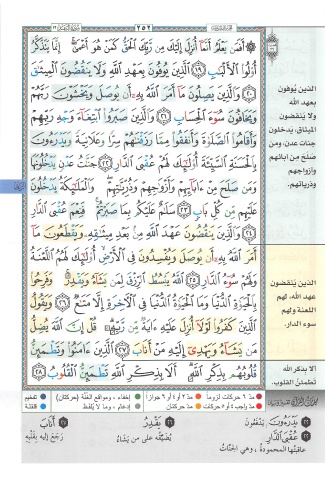 ٢٥٢
۞ أَفَمَن يَعْلَمُ أَنَّمَآ أُنزِلَ إِلَيْكَ مِن رَّبِّكَ ٱلْحَقُّ كَمَنْ هُوَ أَعْمَىٰٓ ۚ إِنَّمَا يَتَذَكَّرُ
أُو۟لُوا۟ ٱلْأَلْبَٰبِ ﴿١٩﴾ ٱلَّذِينَ يُوفُونَ بِعَهْدِ ٱللَّهِ وَلَا يَنقُضُونَ ٱلْمِيثَٰقَ
﴿٢٠﴾ وَٱلَّذِينَ يَصِلُونَ مَآ أَمَرَ ٱللَّهُ بِهِۦٓ أَن يُوصَلَ وَيَخْشَوْنَ رَبَّهُمْ
وَيَخَافُونَ سُوٓءَ ٱلْحِسَابِ ﴿٢١﴾ وَٱلَّذِينَ صَبَرُوا۟ ٱبْتِغَآءَ وَجْهِ رَبِّهِمْ
وَأَقَامُوا۟ ٱلصَّلَوٰةَ وَأَنفَقُوا۟ مِمَّا رَزَقْنَٰهُمْ سِرًّا وَعَلَانِيَةً وَيَدْرَءُونَ
بِٱلْحَسَنَةِ ٱلسَّيِّئَةَ أُو۟لَٰٓئِكَ لَهُمْ عُقْبَى ٱلدَّارِ ﴿٢٢﴾ جَنَّٰتُ عَدْنٍ يَدْخُلُونَهَا
وَمَن صَلَحَ مِنْ ءَابَآئِهِمْ وَأَزْوَٰجِهِمْ وَذُرِّيَّٰتِهِمْ ۖ وَٱلْمَلَٰٓئِكَةُ يَدْخُلُونَ
عَلَيْهِم مِّن كُلِّ بَابٍ ﴿٢٣﴾ سَلَٰمٌ عَلَيْكُم بِمَا صَبَرْتُمْ ۚ فَنِعْمَ عُقْبَى ٱلدَّارِ
﴿٢٤﴾ وَٱلَّذِينَ يَنقُضُونَ عَهْدَ ٱللَّهِ مِنۢ بَعْدِ مِيثَٰقِهِۦ وَيَقْطَعُونَ مَآ
أَمَرَ ٱللَّهُ بِهِۦٓ أَن يُوصَلَ وَيُفْسِدُونَ فِى ٱلْأَرْضِ ۙ أُو۟لَٰٓئِكَ لَهُمُ ٱللَّعْنَةُ
وَلَهُمْ سُوٓءُ ٱلدَّارِ ﴿٢٥﴾ ٱللَّهُ يَبْسُطُ ٱلرِّزْقَ لِمَن يَشَآءُ وَيَقْدِرُ ۚ وَفَرِحُوا۟
بِٱلْحَيَوٰةِ ٱلدُّنْيَا وَمَا ٱلْحَيَوٰةُ ٱلدُّنْيَا فِى ٱلْءَاخِرَةِ إِلَّا مَتَٰعٌ ﴿٢٦﴾ وَيَقُولُ
ٱلَّذِينَ كَفَرُوا۟ لَوْلَآ أُنزِلَ عَلَيْهِ ءَايَةٌ مِّن رَّبِّهِۦ ۗ قُلْ إِنَّ ٱللَّهَ يُضِلُّ
مَن يَشَآءُ وَيَهْدِىٓ إِلَيْهِ مَنْ أَنَابَ ﴿٢٧﴾ ٱلَّذِينَ ءَامَنُوا۟ وَتَطْمَئِنُّ
قُلُوبُهُم بِذِكْرِ ٱللَّهِ ۗ أَلَا بِذِكْرِ ٱللَّهِ تَطْمَئِنُّ ٱلْقُلُوبُ ﴿٢٨﴾
الذين يوفون
بعهد الله
ولا ينقضون
الميثاق، يدخلون
جنات عدن، ومن
صلح من آبائهم
وأزواجهم
وذرياتهم.
الذين ينقضون
عهد الله، لهم
اللعنة ولهم
سوء الدار.
ألا بذكر الله
تطمئن القلوب.
مد ٦ حركات لزوماً مد ٢ أو ٤ أو ٦ جوازاً إخفاء، ومواقع الغنة (حركتان) تفخيم
مد واجب ٤ أو ٥ حركات مد حركتان إدغام، وما لا يلفظ قلقلة
٢٢ يَدْرَءُونَ: يدفعون
٢٢ عُقْبَى الدَّارِ:
عاقبتها المحمودة، وهي الجنات
٢٦ يَقْدِرُ:
يُضيّقه على من يشاء
٢٧ أَنَابَ:
رجع إليه بقلبه